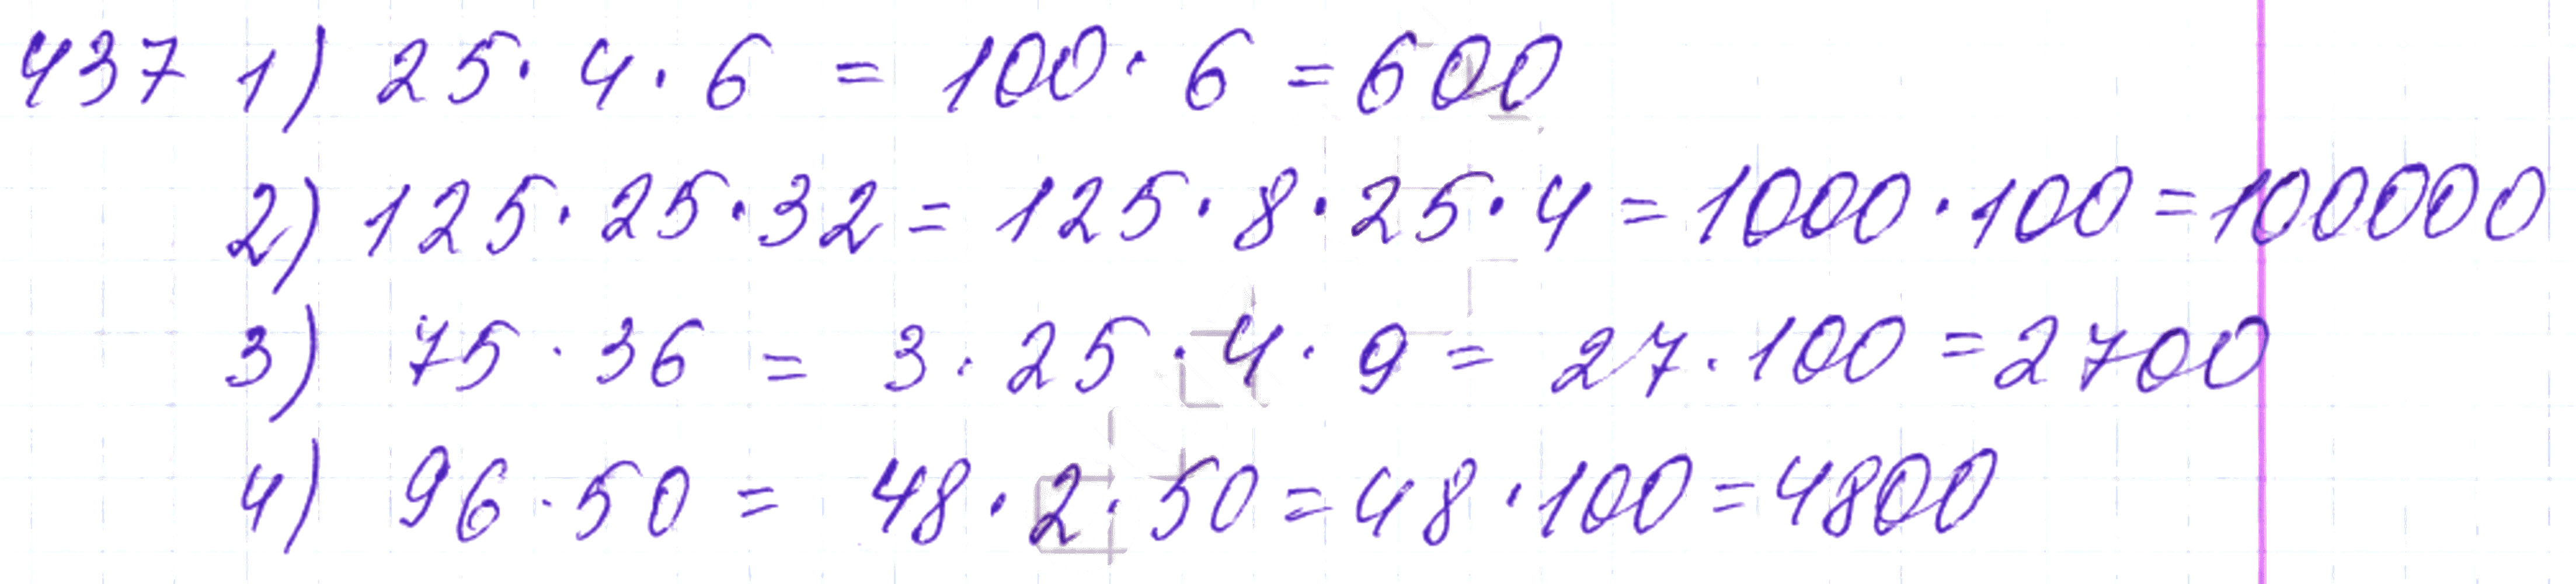 437 1) 25 · 4 · 6 = 100 · 6 = 600
2) 125 · 25 · 32 = 125 · 8 · 25 · 4 = 1000 · 100 = 100000
3) 75 · 36 = 3 · 25 · 4 · 9 = 27 · 100 = 2700
4) 96 · 50 = 48 · 2 · 50 = 48 · 100 = 4800